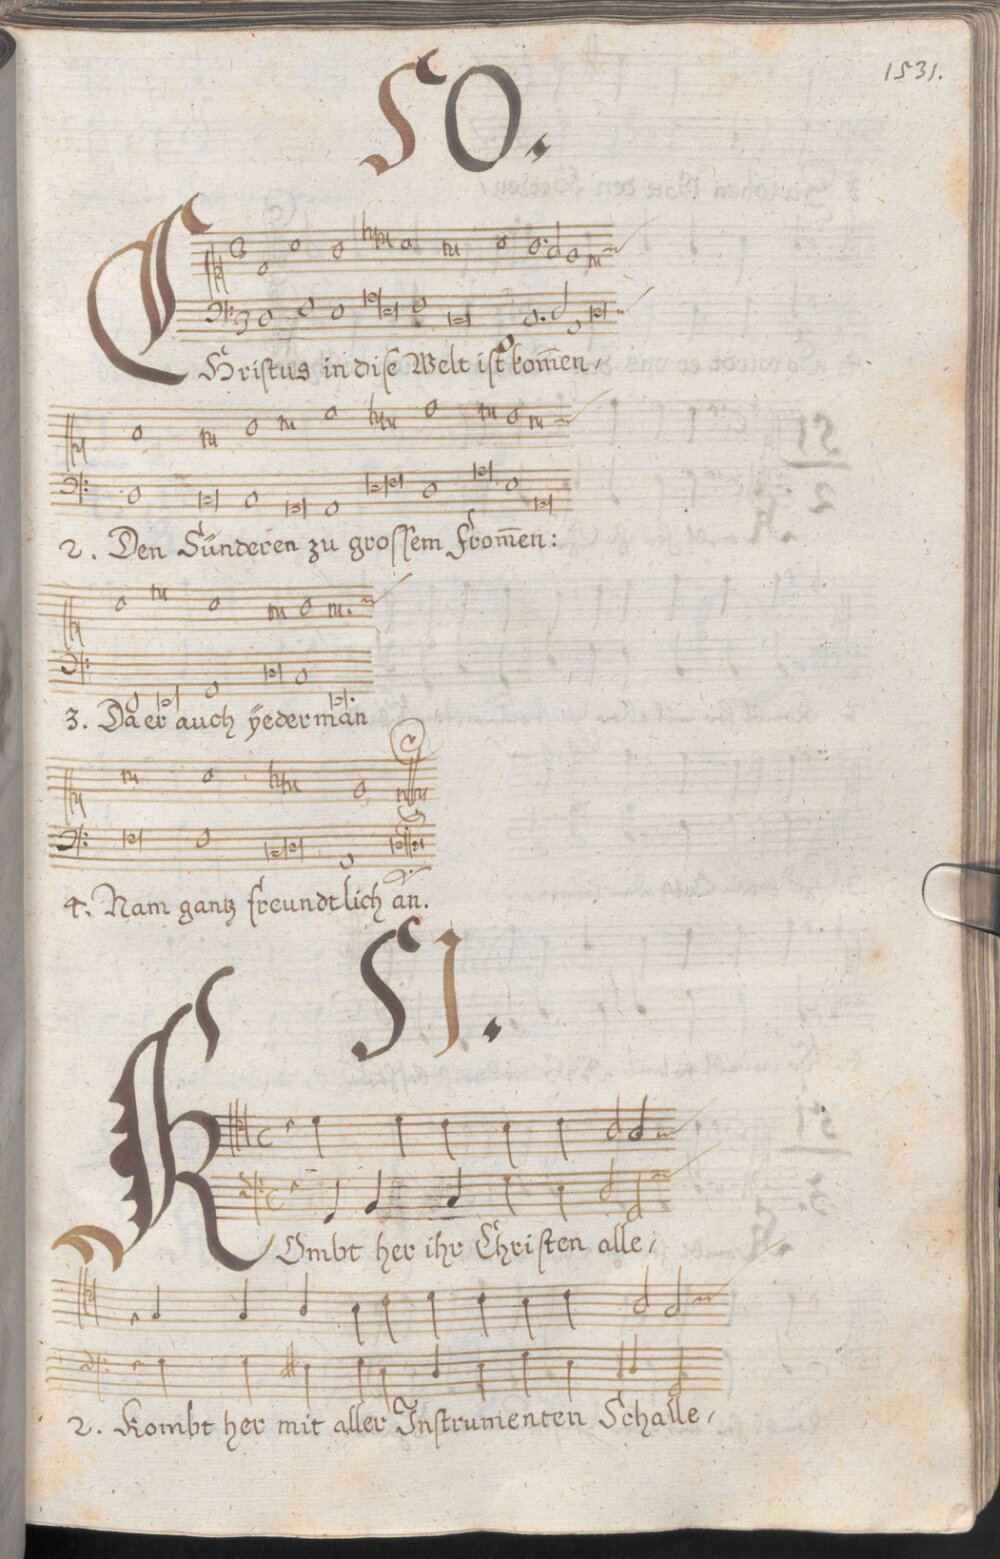 1531.
50.
Christus in dise Welt ist kom̄en,
2. Den Sünderen zu grossem From̄en:
3. Da er auch ÿederman
4. Nam gantz freundtlich an.
51.
Kombt her ihr Christen alle,
2. Kombt her mit aller Instrumenten Schalle,